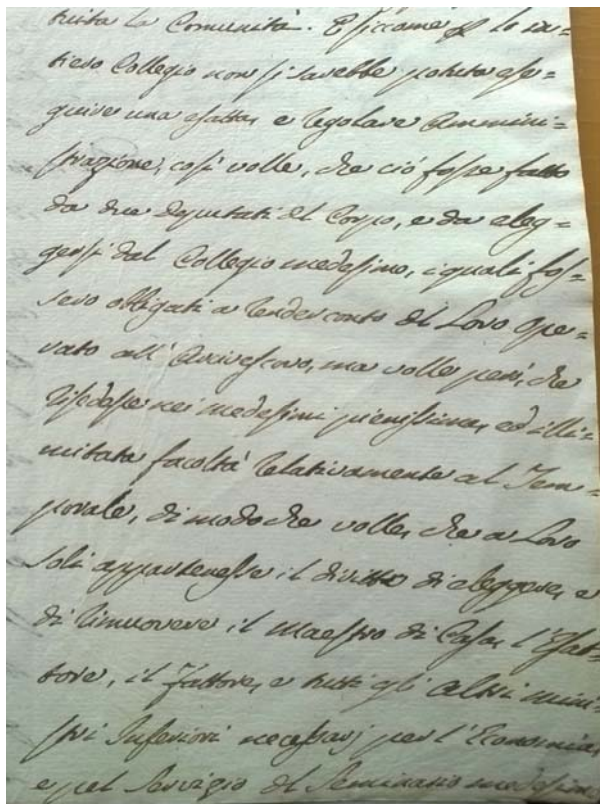 tutta la Comunità. E siccome per lo in=
tiero Collegio non si sarebbe potuta ese=
guire una esatta, e regolare Ammini=
strazione, così volle, che ciò fosse fatto
da due deputati del Corpo, e da eleg=
gersi dal Collegio medesimo, i quali fos=
sero obbligati a render conto del Loro ope=
rato all' Arcivescovo, ma volle però, che
risedesse nei medesimi pienissima, ed illi=
mitata facoltà relativamente al Tem=
porale, di modo che volle, che a Loro
soli appartenesse il diritto di eleggere, e
di rimuovere il Maestro di Casa, l'Esat=
tore, il Fattore, e tutti gli altri mini=
stri Inferiori necessarj per l'Economia,
e pel servigio del Seminario medesimo